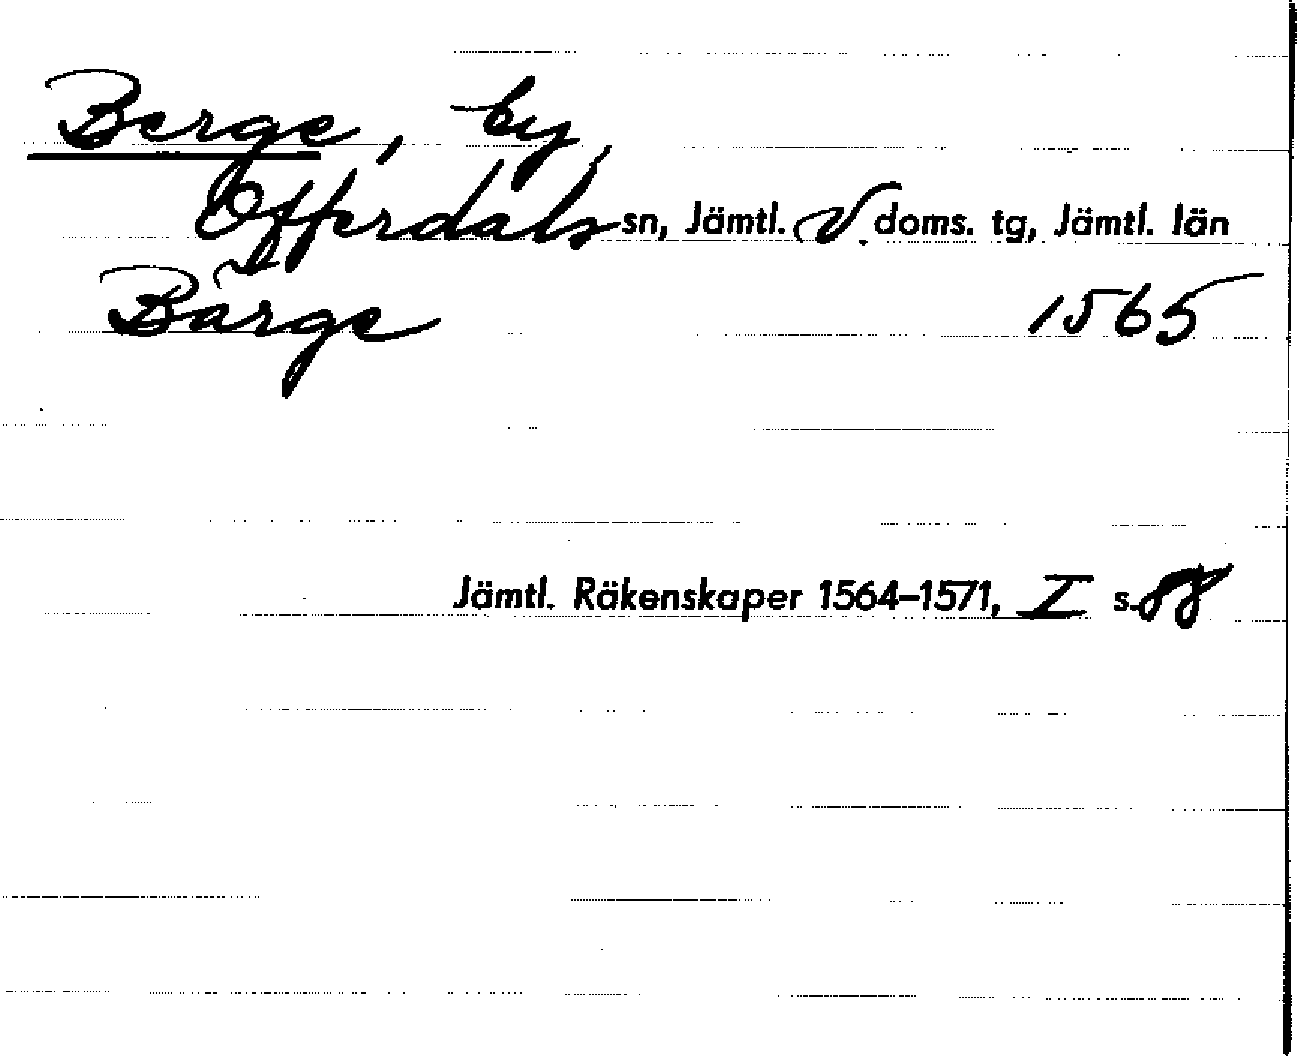 Berge, by,
Offerdals sn, Jämtl. V doms. tg, Jämtl. län
Bärge 1565
Jämtl. Räkenskaper 1564–1571, I s. 88